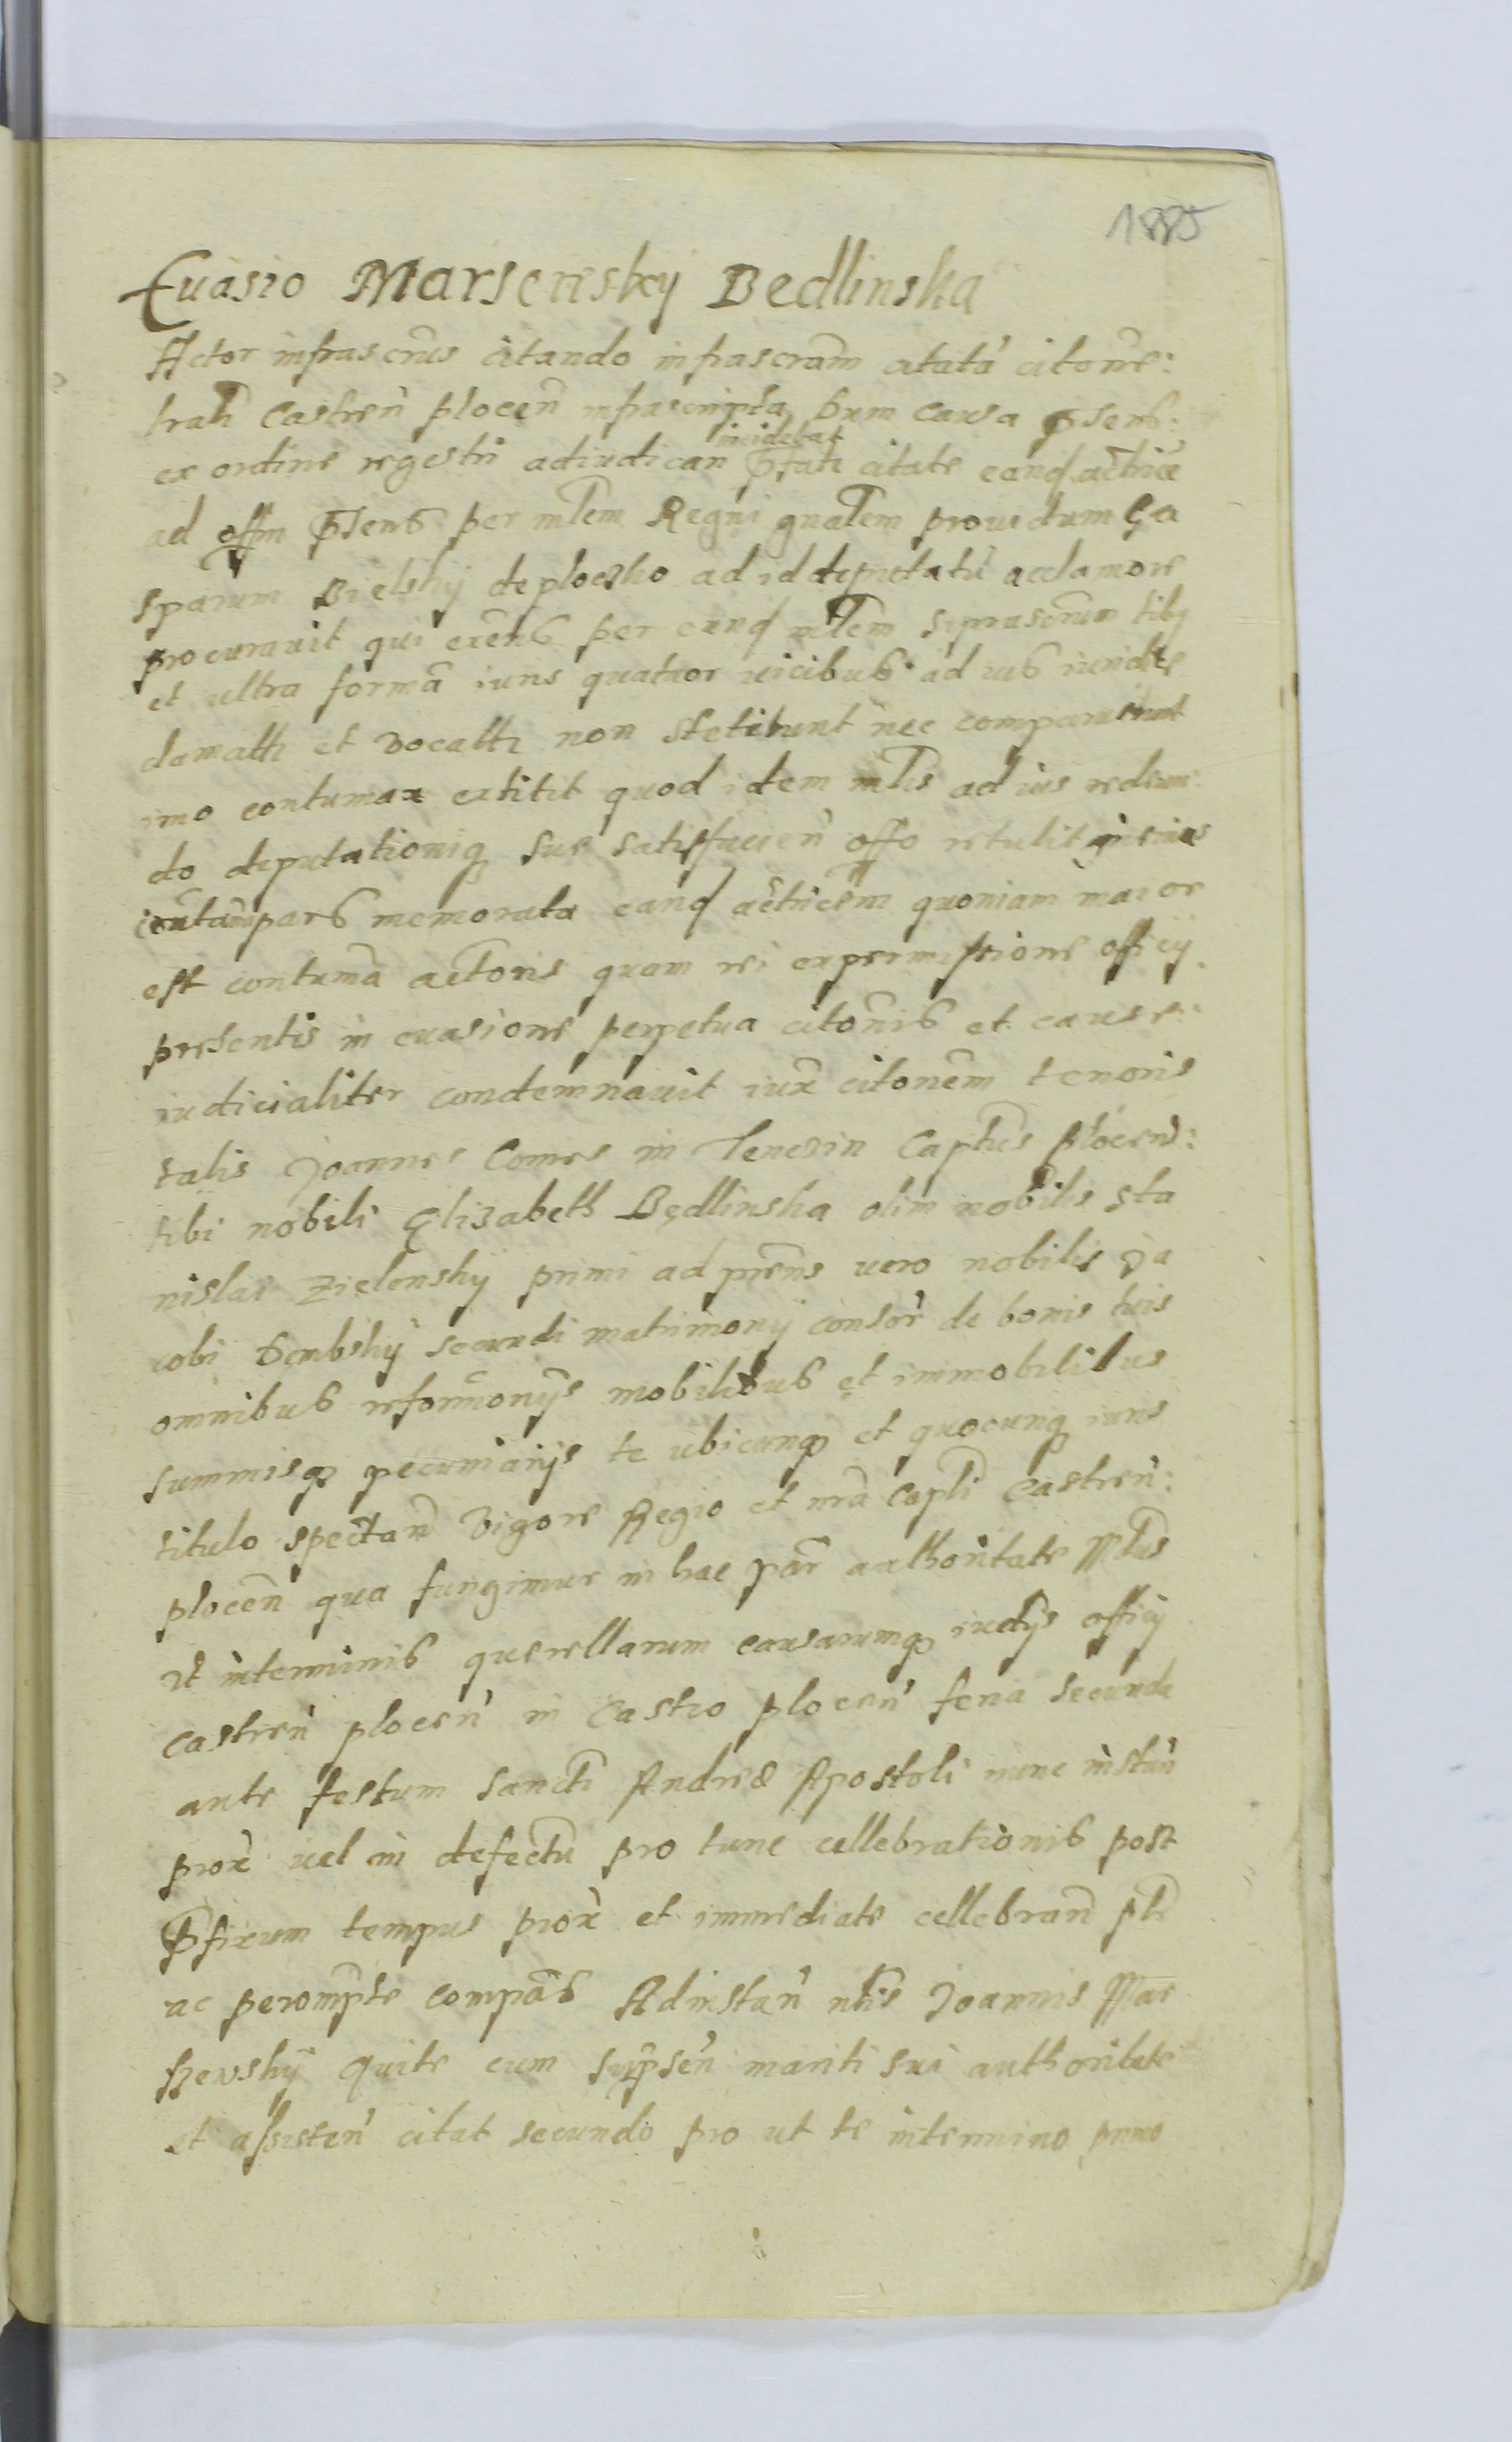 1885
Euasio Marscewskӱ Bedlinska
Actor infrascrūs citando infrascram̄ citatā citoñe:
trah Castreñ ploceñ infrascripta dum causa p̄sens:
ex ordine regestri adiudican incidebat p̄fati citate eandq̄ actricē
ad offm p̄sens per mlem Regni gnalem prouidum Ga
sparum Bielskӱ de plocsko ad id deputatū acclamore
procurauit qui exēns per eund mlem suprascrum tibq
et ultra formā iuris quatuor uicibus ad ius iuridce
clamath et vocath non stetibunt nec comparuerunt
imo contumax extitit quod idem mlis ad ius redeun
do deputationiq suе satisfacieñ offo retulit in cuius
contūam pars memorata eand actricem quoniam maior
est contumā actoris quam rei ex permissione officӱ
presentis in euasione perpetua citonis et cause:
iudicialiter condemnauit iux citonem tenoris
talis Joannes Comes in Tenczin Captus ploceñ:
tibi nobili Elizabeth Będlinska olim nobilis Sta
nislai Zielonskӱ primi ad prēns uero nobilis Ja
cobi Dembskӱ secundi matrimonӱ consor̄ de bonis tuis
omnibus reformonӱs mobilibus et immobilibus
summisq pecuniarӱs te ubicunq et quocunq iuris
titulo spectan̄ vigore Regio et nrā capli Castreñ:
ploceñ qua fungimur in hac par̄ authoritate m̄dus
vt in terminis querellarum causarumq iudӱs officӱ
castreñ ploceñ in Castro ploceñ feria secunda
ante festum Sancti Andreæ Apostoli nunc instan̄
prox̄ uel in defectu pro tunc cellebrationis post
p̄fixum tempus prox̄ et immediate cellebran̄ plr̄
ac peromp̄te compās Ad instan̄ nblis Joannis Mar
szewskӱ qui te cum suprsen̄ mariti sui authoritate
et assisten̄ citat secundo pro ut te in termino primo